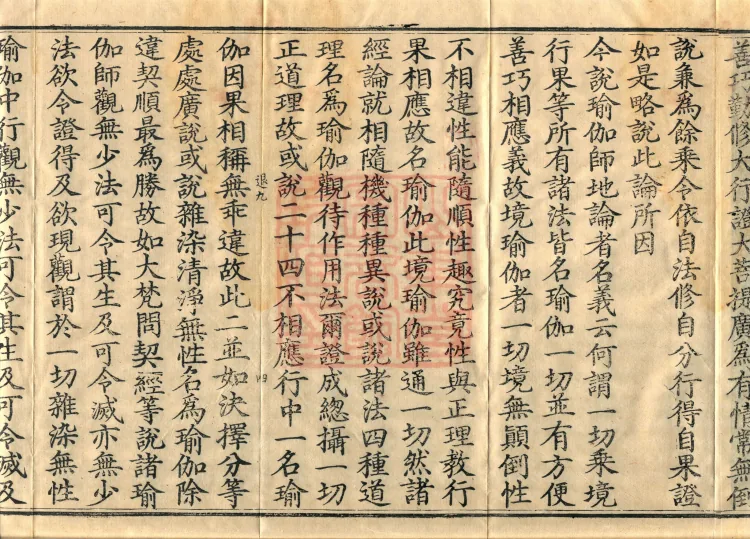 善巧勤修大行證大菩提廣爲有情常無倒
說兼爲餘乘令依自法修自分行得自果證
如是略說此論所因
今說瑜伽師地論者名義云何謂一切乘境
行果等所有諸法皆名瑜伽一切並有方便
善巧相應義故境瑜伽者一切境無顚倒性
不相違性能隨順性趣究竟性與正理教行
果相應故名瑜伽此境瑜伽雖通一切然諸
經論就相隨機種種異說或說諸法四種道
理名爲瑜伽觀待作用法爾證成總攝一切
正道理故或說二十四不相應行中一名瑜
退九
四
伽因果相稱無乖違故此二並如決擇分等
處處廣說或說雜染清淨無性名爲瑜伽除
違契順最爲勝故如大梵問契經等說諸瑜
伽師觀無少法可令其生及可令滅亦無少
法欲令證得及欲現觀謂於一切雜染無性
瑜伽中行觀無少法可令其生及可令滅及